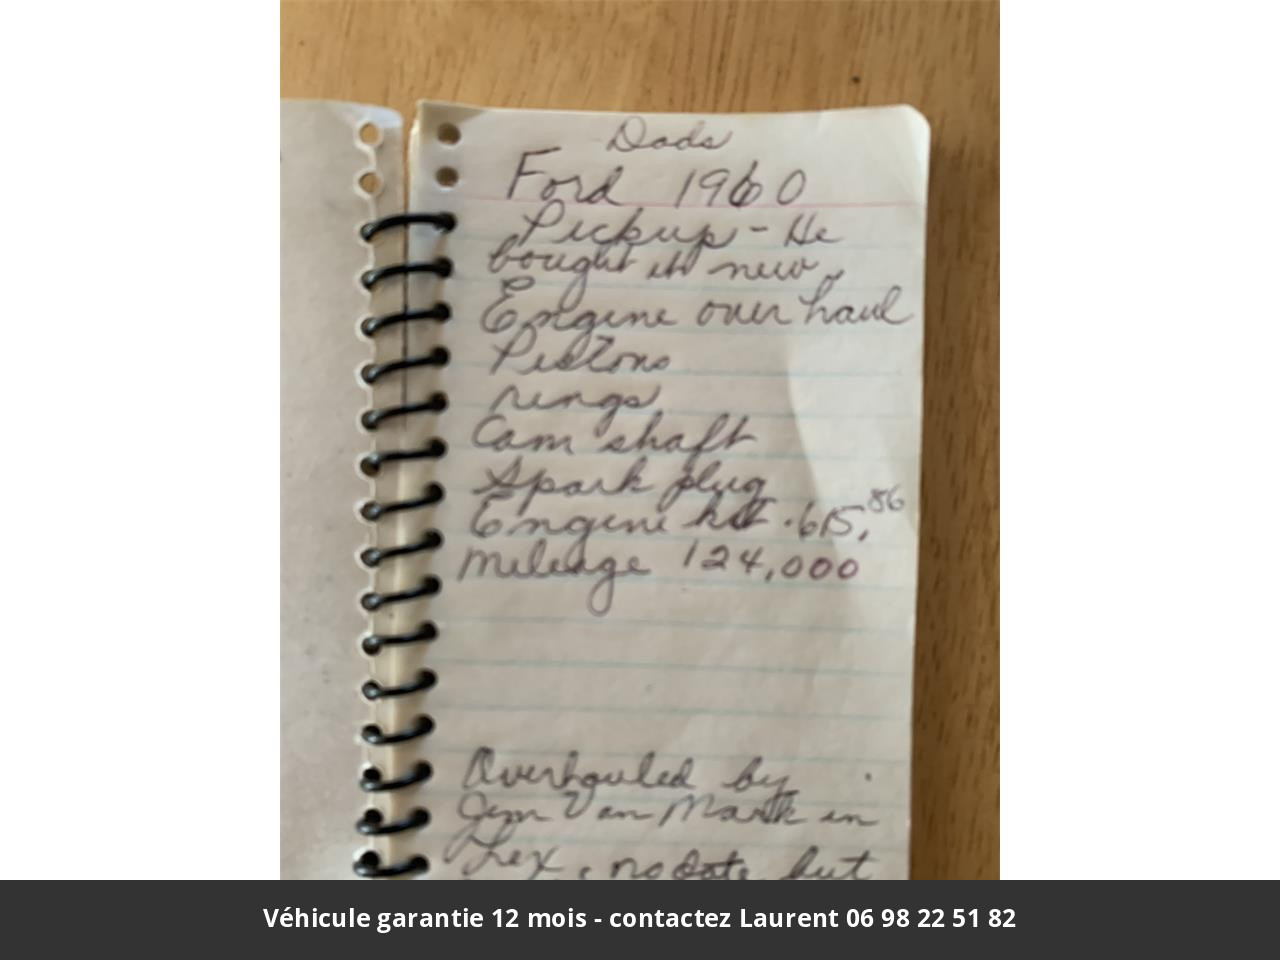 Dads
Ford 1960
Pickup - He
bought it new.
Engine over haul
Pistons
rings
Cam shaft
Spark plug
Engine kit . 615.86
Mileage 124,000
Overhauled by
Jim Van Mark in
Lex, no date, but
Véhicule garantie 12 mois - contactez Laurent 06 98 22 51 82